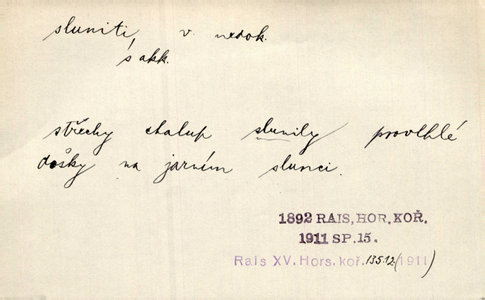 sluniti, v. nedok.
s akk.
střechy chalup slunily provlhlé
došky na jarním slunci.
1892 RAIS, HOR. KOŘ.
1911 SP. 15.
Rais XV. Hors. koř. (1911)